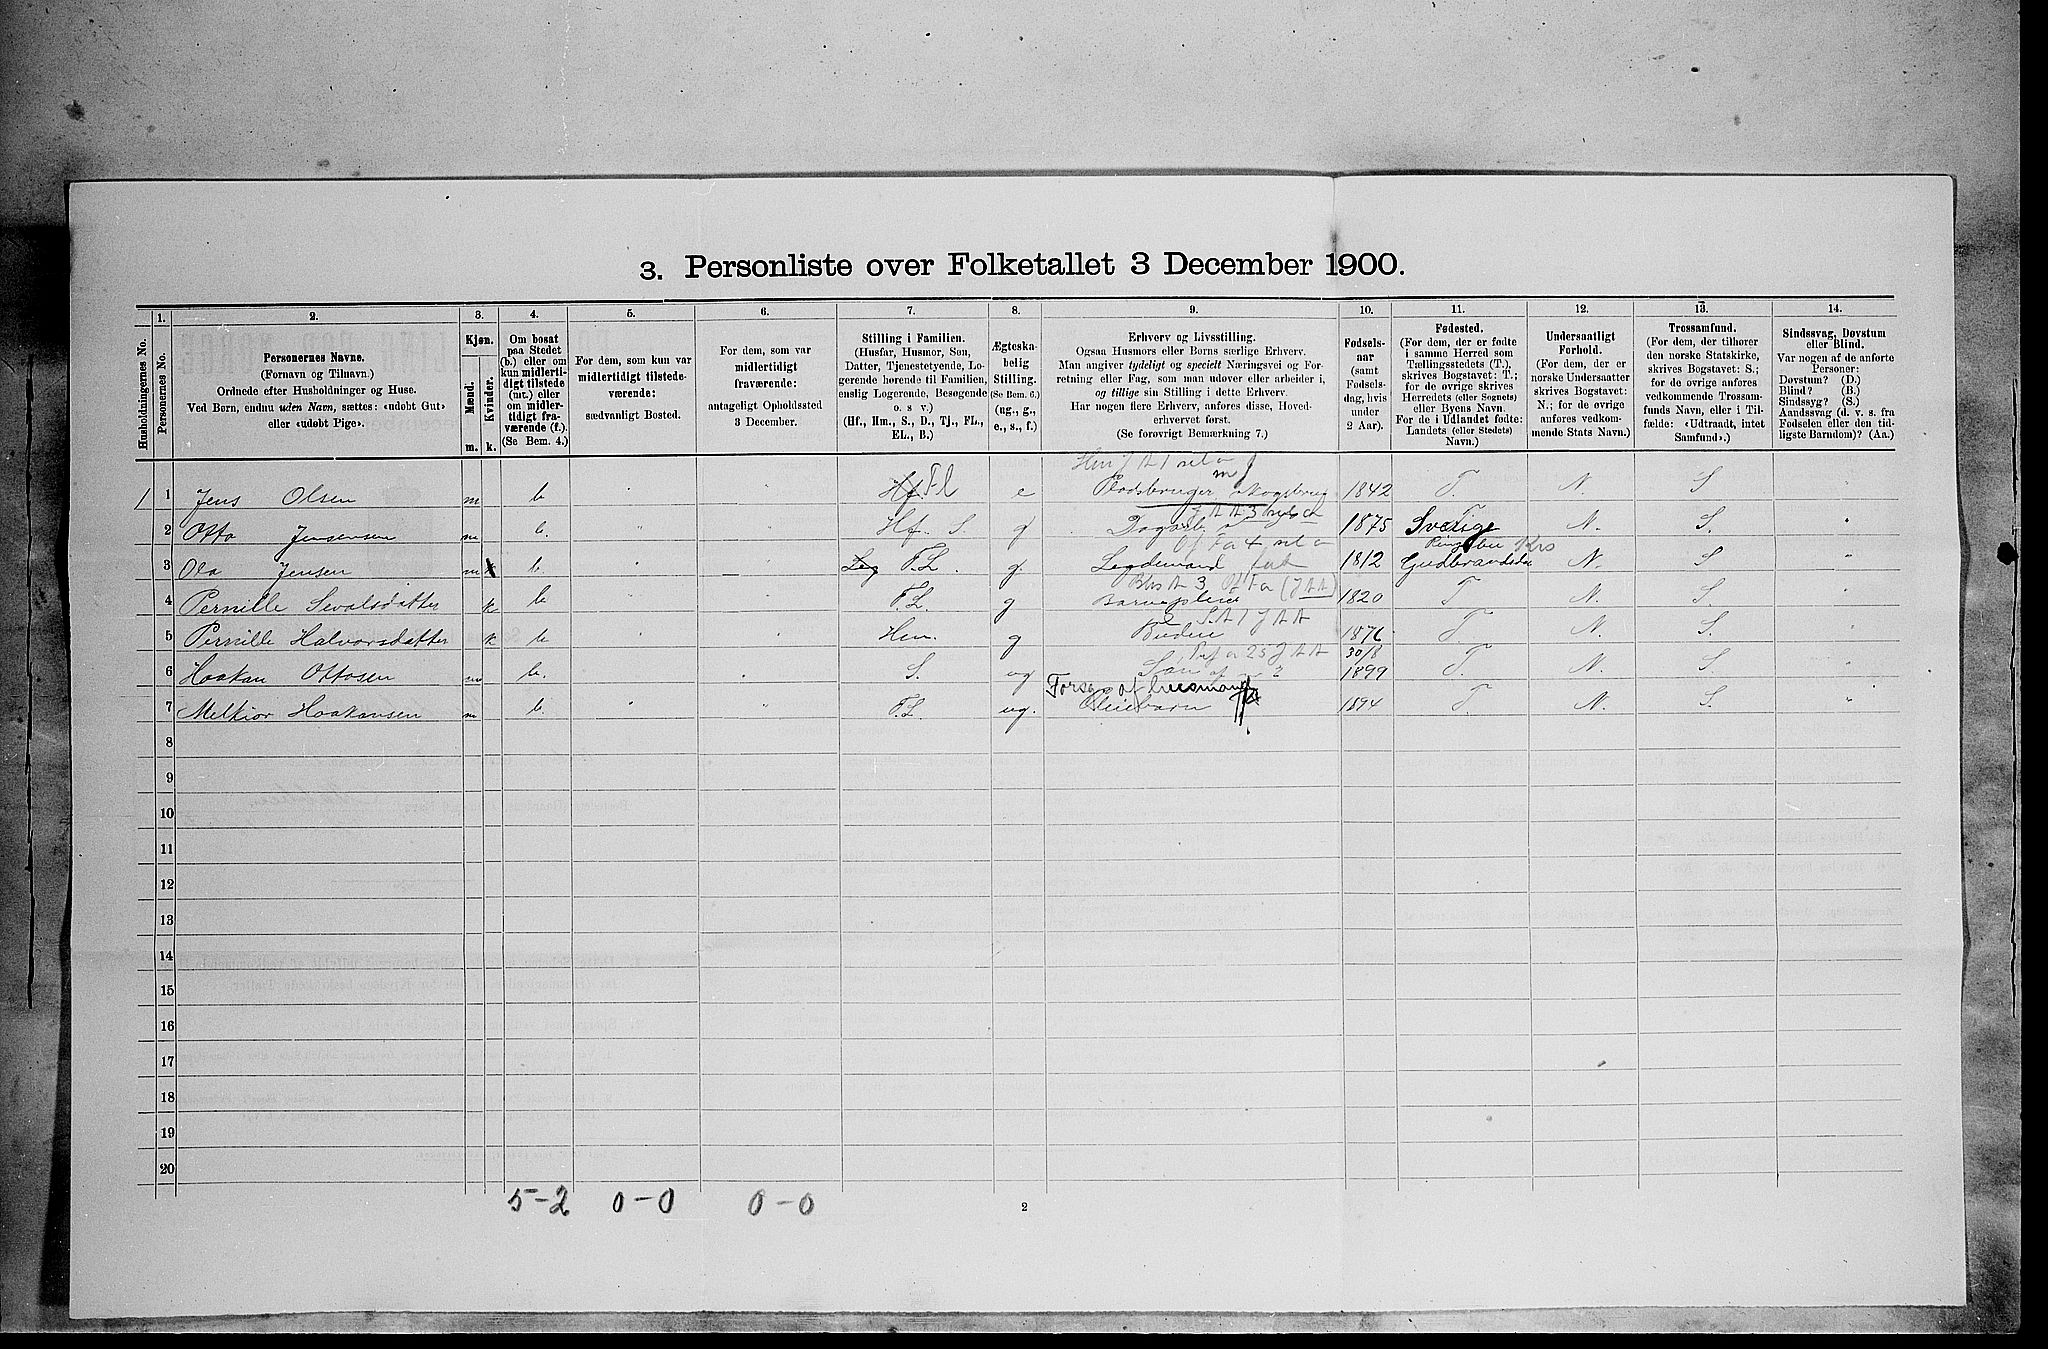 3. Personliste over Folketallet 3 December 1900.
1. 2. 3. 4. 5. 6. 7. 8. 9. 10. 11. 12. 13. 14.
Husholdningernes No.
Personernes No.
Personernes Navne.
(Fornavn og Tilnavn.)
Ordnede efter Husholdninger og Huse.
Ved Børn, endnu uden Navn, sættes: «udøbt Gut»
eller «udøbt Pige».
Kjøn.
Mænd.
Kvinder.
m. k.
Om bosat
paa Stedet
(b.) eller om
kun midlerti-
digt tilstede
(mt.) eller
om midler-
tidigt fra-
værende (f.).
(Se Bem. 4.)
For dem, som kun var
midlertidigt tilstede-
værende:
sædvanligt Bosted.
For dem, som var
midlertidigt
fraværende:
antageligt Opholdssted
3 December.
Stilling i Familien.
(Husfar, Husmor, Søn,
Datter, Tjenestetyende, Lo-
gerende hørende til Familien,
enslig Logerende, Besøgende
o. s v.)
(Hf., Hm., S., D., Tj., FL.,
EL., B.)
Ægteska-
belig
Stilling.
(Se Bem. 6.)
(ug., g.,
e., s., f.)
Erhverv og Livsstilling.
Ogsaa Husmors eller Børns særlige Erhverv.
Man angiver tydeligt og specielt Næringsvei og For-
retning eller Fag, som man udøver eller arbeider i,
og tillige sin Stilling i dette Erhverv.
Har nogen flere Erhverv, anføres disse, Hoved-
erhvervet først.
(Se forøvrigt Bemærkning 7.)
Fødsels-
aar
(samt
Fødsels-
dag, hvis
under
2 Aar).
Fødested.
(For dem, der er fødte
i samme Herred som
Tællingsstedets (T.),
skrives Bogstavet: T.;
for de øvrige skrives
Herredets (eller Sognets)
eller Byens Navn.
For de i Udlandet fødte:
Landets (eller Stedets)
Navn.)
Undersaatligt
Forhold.
(For dem, der er
norske Undersaatter
skrives Bogstavet:
N.; for de øvrige
anføres vedkom-
mende Stats Navn.)
Trossamfund.
(For dem, der tilhører
den norske Statskirke,
skrives Bogstavet: S.;
for de øvrige anføres
vedkommende Trossam-
funds Navn, eller i Til-
fælde: «Udtraadt, intet
Samfund».)
Sindssvag, Døvstum
eller Blind.
Var nogen af de anførte
Personer:
Døvstum? (D.)
Blind? (B.)
Sindssyg? (S.)
Aandssvag (d. v. s. fra
Fødselen eller den tid-
ligste Barndom)? (Aa.)
1 1 Jens Olsen m b. Hf. FL e 1842 T. N. S
2 Otto Jensensen m b. Hf. S. g 1875 Sverige T. N. S.
3 Ola Jensen m k b. Log F.L. g Legdemand 1812 Gudbrandsdal N. S
4 Pernille Sevalsdatter k b. F.L. g 1820 T N. S.
5 Pernille Halvorsdatter k b. Hm. g Budeie 1876 T. N. S.
6 Haakan Ottosen m b. S. ug Søn 30/8 1899 T. N. S.
7 Melkior Haakansen m b. F.L ug. Pleiebarn 1894 T. N. S.
8
9
10
11
12
13
14
15
16
17
18
19
20
5-2 0-0 0-0
2